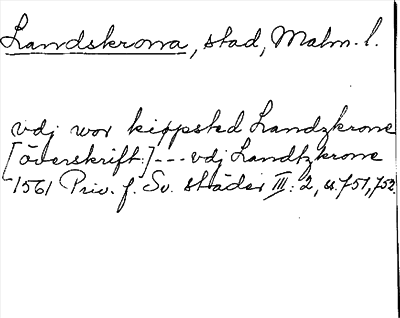 Landskrona, stad, Malm. l.
vdj wor kiøpsted Landzkrone
[överskrift:] --- vdj Landtzkrone
1561 Priv. f. Sv. städer III: 2, s. 751, 752.